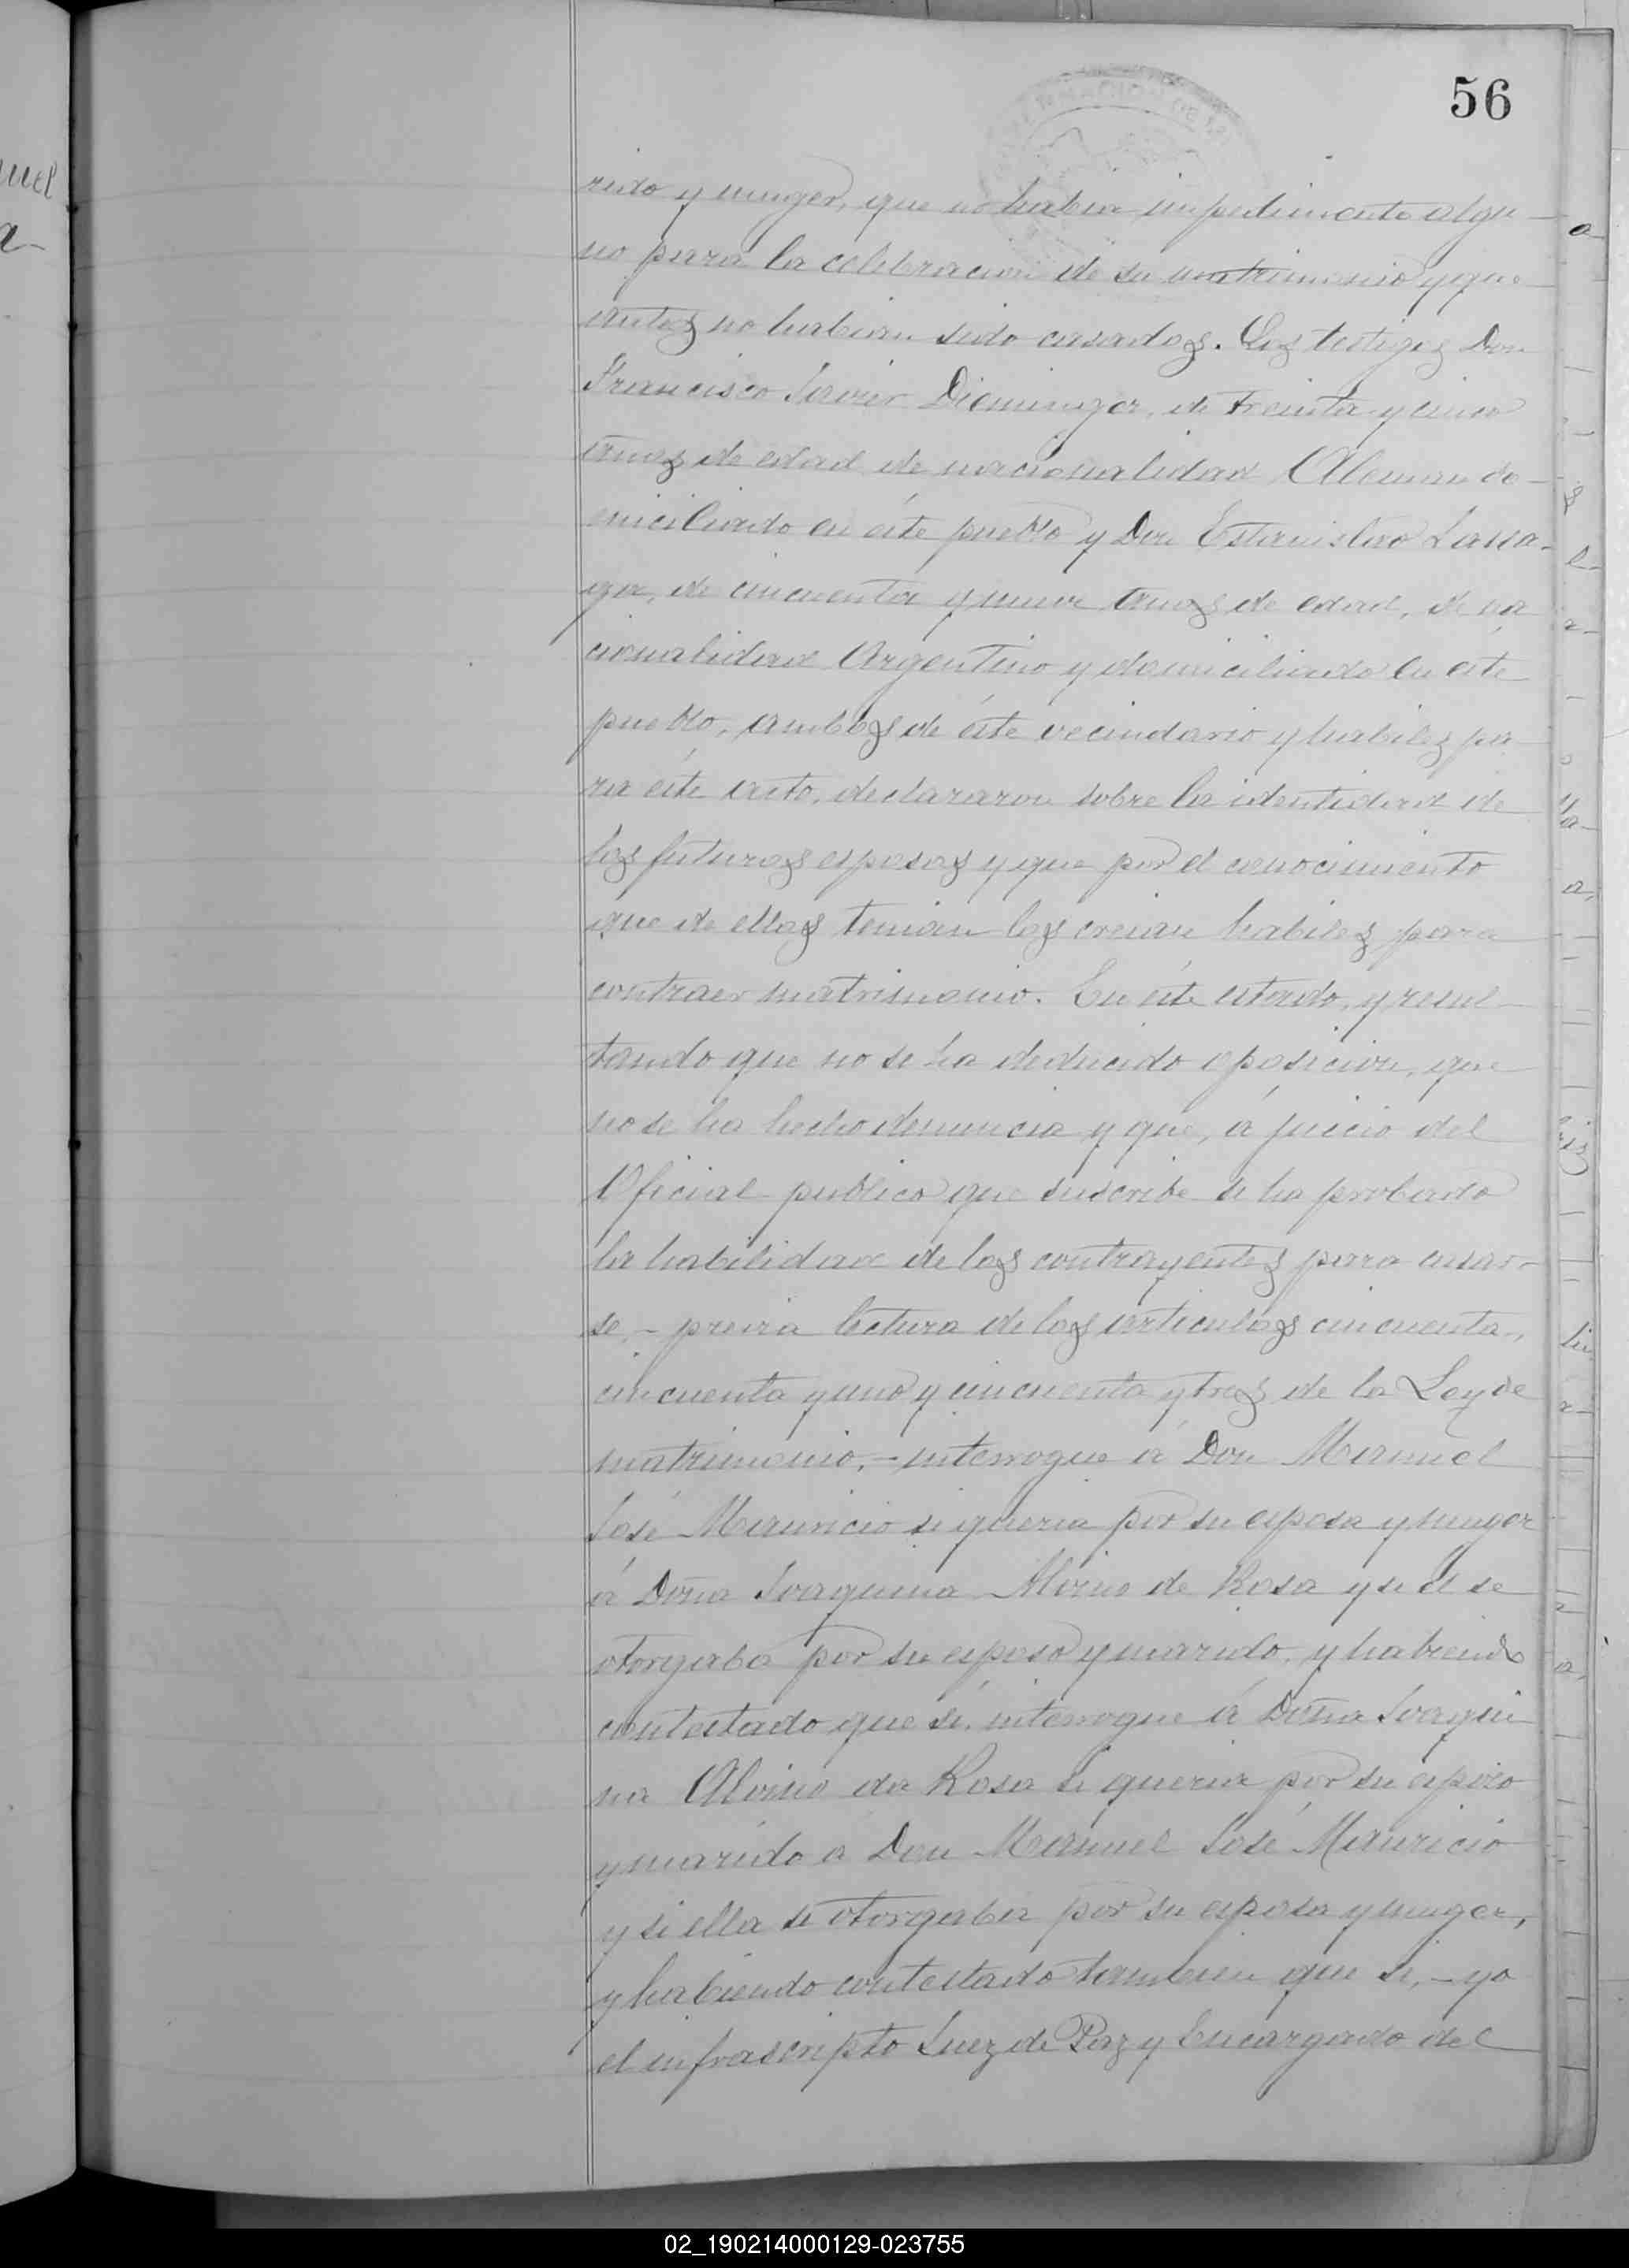 56
rido y muger, que no habia impedimento algu-
no para la celebracion de su matrimonio y que
antes no habian sido casados. Los testigos Don
Francisco Javier Dieminger, de treinta y cinco
años de edad de nacionalidad Aleman do-
miciliado en éste pueblo y Don Estanislao
de cincuenta y nueve años de edad, de na
cionalidad Argentino y domiciliado en éste
pueblo, ambos de éste vecindario y habiles pa-
ra éste acto, declararon sobre la identidad de
los futuros esposos y que por el conocimiento
que de ellos tenian los creian habiles para
contraer matrimonio. En éste estado, y resul-
tando que no se ha deducido oposicion, que
no se ha hecho denuncia y que, á juicio del
Oficial publico que suscribe se ha probado
la habilidad de los contrayentes para casar-
se,- previa lectura de los articulos cincuenta,
cincuenta y uno y cincuenta y tres de la Ley de
matrimonio,- interrogue á Don Manuel
José Mauricio si queria por su esposa y muger
á Doña Joaquina Alvino de Rosa y si él se
otorgaba por su esposo y marido, y habiendo
contestado que sí, interrogue á Doña Joaqui
na Alvino da Rosa si queria por su esposo
y marido a Don Manuel José Mauricio
y si ella se otorgaba por su esposa y muger,
y habiendo contestado tambien que si,- yo
el infrascripto Juez de Paz y Encargado del
02_190214000129-023755